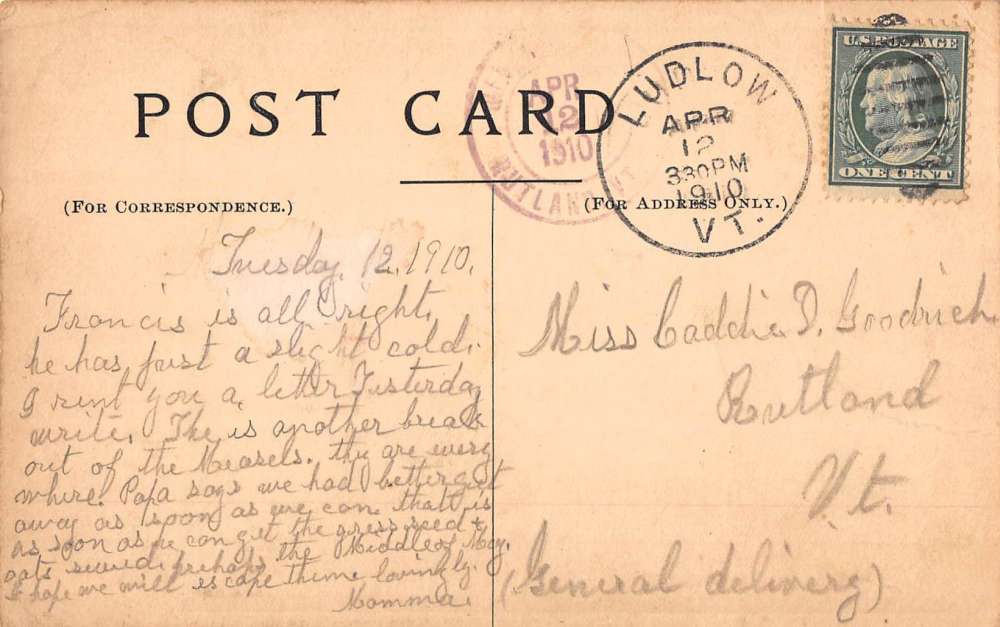 POST CARD
(FOR CORRESPONDENCE.)
(FOR ADDRESS ONLY.)
APR
12
1910
RUTLAND VT
LUDLOW
APR
12
330PM
1910
VT.
U.S. POSTAGE
ONE CENT
Tuesday, 12, 1910,
Francis is all right,
he has just a slight cold.
I sent you a letter Yesterday
write, The is another break
out of the Measels. they are every
where. Papa says we had better get
away as soon as we can. that is
as soon as he can get the grass seed &
oats sewed. perhaps the Middle of May.
I hope we will iscape theme lovingly.
Momma.
Miss Caddie D. Goodrich,
Rutland
Vt.
(General delivery)